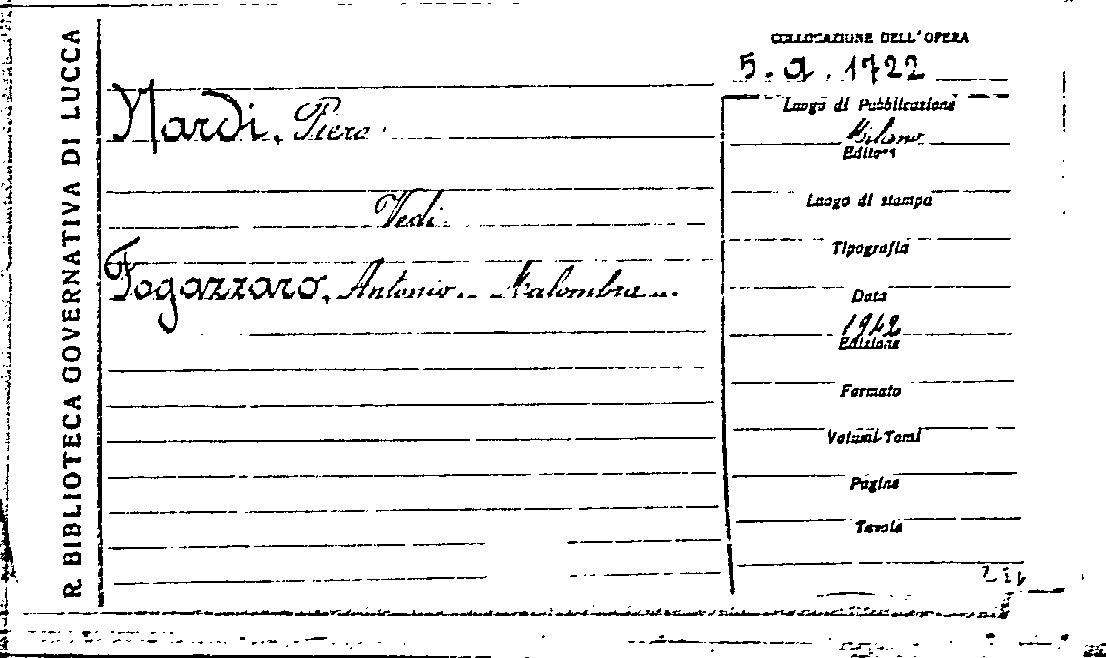 R. BIBLIOTECA GOVERNATIVA DI LUCCA
COLLOCAZIONE DELL'OPERA
5. a. 1722
Nardi, Piero.
Vedi.
Fogazzaro, Antonio. - Malombra.
Luogo di Pubblicazione
Milano
Editore
Luogo di stampa
Tipografia
Data
1942
Edizione
Formato
Volumi-Tomi
Pagine
Tavole